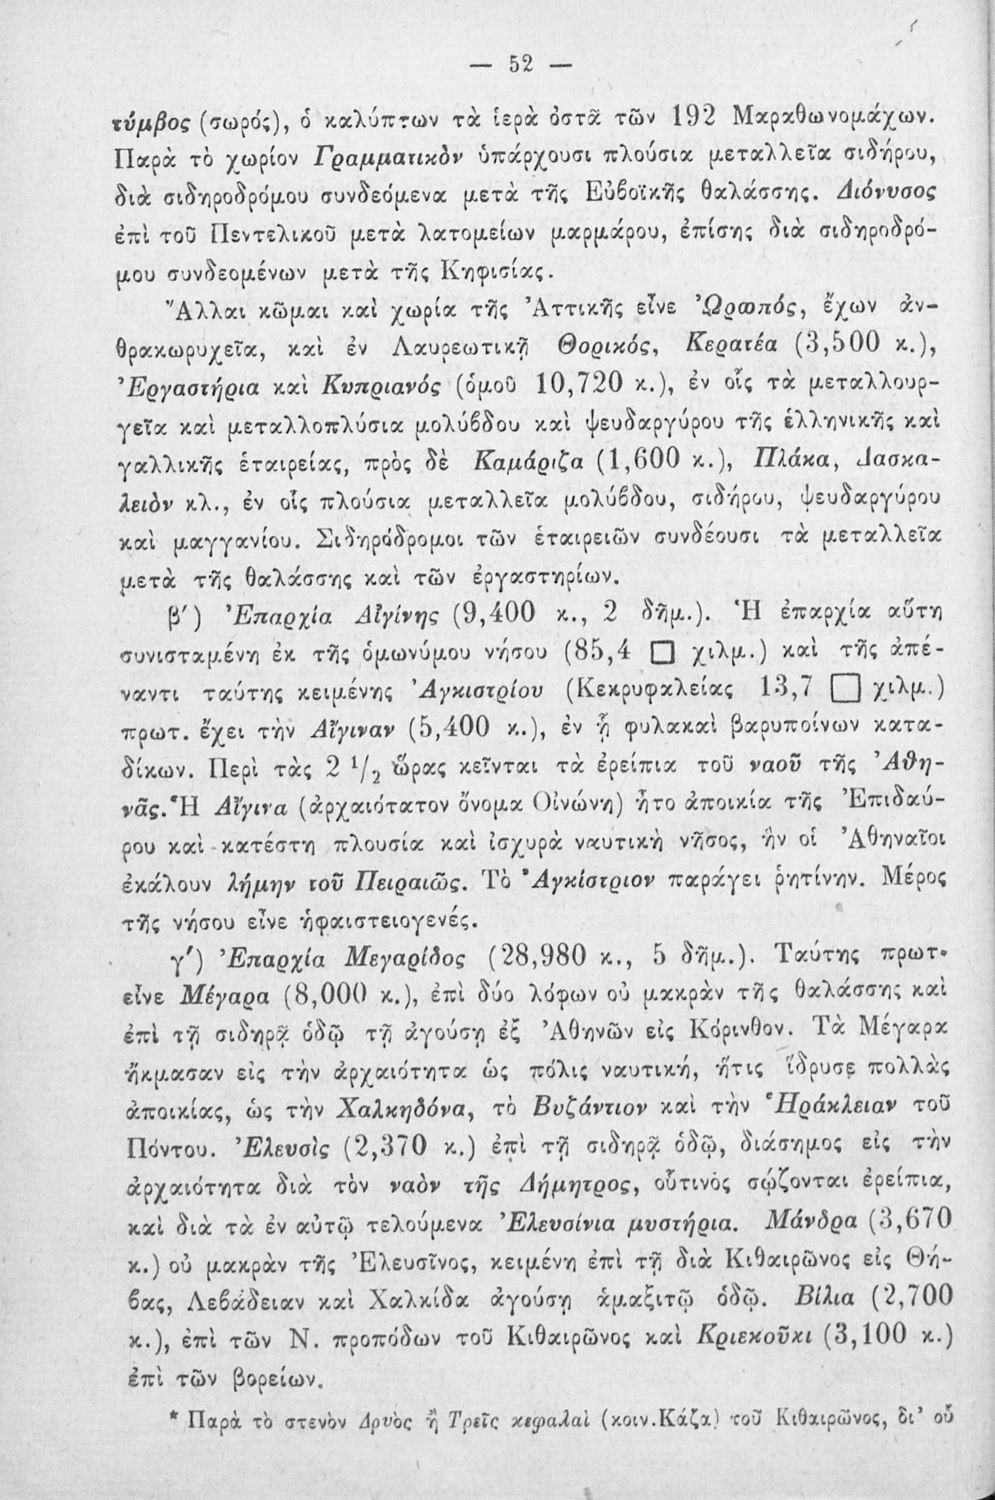 — 52 —
τύμβος (σωρός), ὁ καλύπτων τὰ ἱερὰ ὀστᾶ τῶν 192 Μαραθωνομάχων.
Παρὰ τὸ χωρίον Γραμματικὸν ὑπάρχουσι πλούσια μεταλλεῖα σιδήρου,
διὰ σιδηροδρόμου συνδεόμενα μετὰ τῆς Εὐβοϊκῆς θαλάσσης. Διόνυσος
ἐπὶ τοῦ Πεντελικοῦ μετὰ λατομείων μαρμάρου, ἐπίσης διὰ σιδηροδρό-
μου συνδεομένων μετὰ τῆς Κηφισίας.
Ἄλλαι κῶμαι καὶ χωρία τῆς Ἀττικῆς εἶνε Ὠρωπός, ἔχων ἀν-
θρακωρυχεῖα, καὶ ἐν Λαυρεωτικῇ Θορικός, Κερατέα (3,500 κ.),
Ἐργαστήρια καὶ Κυπριανός (ὁμοῦ 10,720 κ.), ἐν οἷς τὰ μεταλλουρ-
γεῖα καὶ μεταλλοπλύσια μολύβδου καὶ ψευδαργύρου τῆς ἑλληνικῆς καὶ
γαλλικῆς ἑταιρείας, πρὸς δὲ Καμάριζα (1,600 κ.), Πλάκα, Δασκα-
λειὸν κλ., ἐν οἷς πλούσια μεταλλεῖα μολύβδου, σιδήρου, ψευδαργύρου
καὶ μαγγανίου. Σιδηρόδρομοι τῶν ἑταιρειῶν συνδέουσι τὰ μεταλλεῖα
μετὰ τῆς θαλάσσης καὶ τῶν ἐργαστηρίων.
β′) Ἐπαρχία Αἰγίνης (9,400 κ., 2 δῆμ.). Ἡ ἐπαρχία αὕτη
συνισταμένη ἐκ τῆς ὁμωνύμου νήσου (85,4 □ χιλμ.) καὶ τῆς ἀπέ-
ναντι ταύτης κειμένης Ἀγκιστρίου (Κεκρυφαλείας 13,7 □ χιλμ.)
πρωτ. ἔχει τὴν Αἴγιναν (5,400 κ.), ἐν ᾗ φυλακαὶ βαρυποίνων κατα-
δίκων. Περὶ τὰς 2 1/2 ὥρας κεῖνται τὰ ἐρείπια τοῦ ναοῦ τῆς Ἀθη-
νᾶς. Ἡ Αἴγινα (ἀρχαιότατον ὄνομα Οἰνώνη) ἦτο ἀποικία τῆς Ἐπιδαύ-
ρου καὶ κατέστη πλουσία καὶ ἰσχυρὰ ναυτικὴ νῆσος, ἣν οἱ Ἀθηναῖοι
ἐκάλουν λήμην τοῦ Πειραιῶς. Τὸ Ἀγκίστριον παράγει ῥητίνην. Μέρος
τῆς νήσου εἶνε ἡφαιστειογενές.
γ′) Ἐπαρχία Μεγαρίδος (28,980 κ., 5 δῆμ.). Ταύτης πρωτ.
εἶνε Μέγαρα (8,000 κ.), ἐπὶ δύο λόφων οὐ μακρὰν τῆς θαλάσσης καὶ
ἐπὶ τῇ σιδηρᾷ ὁδῷ τῇ ἀγούσῃ ἐξ Ἀθηνῶν εἰς Κόρινθον. Τὰ Μέγαρα
ἤκμασαν εἰς τὴν ἀρχαιότητα ὡς πόλις ναυτική, ἥτις ἵδρυσε πολλὰς
ἀποικίας, ὡς τὴν Χαλκηδόνα, τὸ Βυζάντιον καὶ τὴν Ἡράκλειαν τοῦ
Πόντου. Ἐλευσὶς (2,370 κ.) ἐπὶ τῇ σιδηρᾷ ὁδῷ, διάσημος εἰς τὴν
ἀρχαιότητα διὰ τὸν ναὸν τῆς Δήμητρος, οὗτινὸς σῴζονται ἐρείπια,
καὶ διὰ τὰ ἐν αὐτῷ τελούμενα Ἐλευσίνια μυστήρια. Μάνδρα (3,670
κ.) οὐ μακρὰν τῆς Ἐλευσῖνος, κειμένη ἐπὶ τῇ διὰ Κιθαιρῶνος εἰς Θή-
βας, Λεβάδειαν καὶ Χαλκίδα ἀγούσῃ ἁμαξιτῷ ὁδῷ. Βίλια (2,700
κ.), ἐπὶ τῶν Ν. προπόδων τοῦ Κιθαιρῶνος καὶ Κριεκοῦκι (3,100 κ.)
ἐπὶ τῶν βορείων.
* Παρὰ τὸ στενὸν Δρυὸς ἢ Τρεῖς κεφαλαὶ (κοιν. Κάζα) τοῦ Κιθαιρῶνος, δι' οὗ